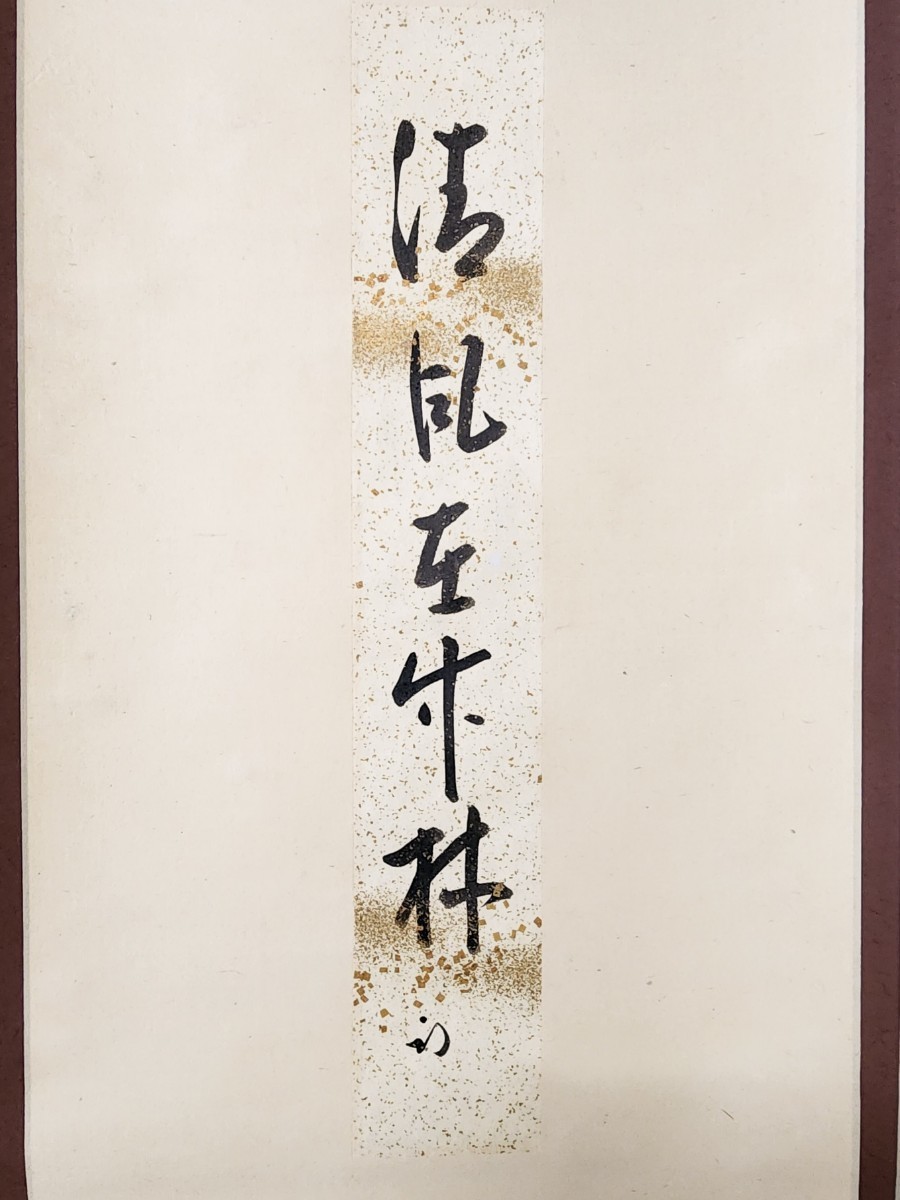 清風在竹林